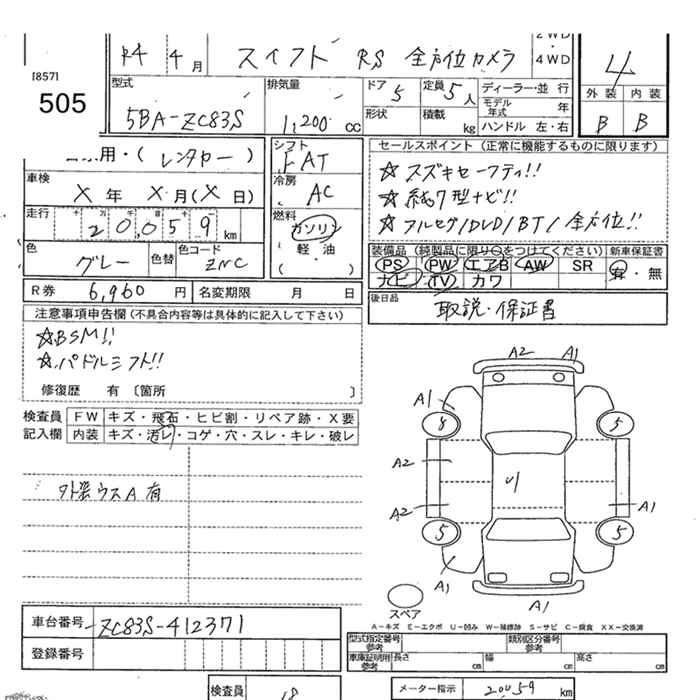 [857]
505
R4 4月 スイフト RS 全方位カメラ
2WD・4WD
4
型式 5BA-ZC83S
排気量 1,200 CC
ドア 5
形状
定員 5人
積載 kg
ディーラー・並行
モデル年式 年
ハンドル 左・右
外装 内装
B B
用・(レンタカー)
シフト FAT
セールスポイント(正常に機能するものに限ります)
車検 X年 X月(X日)
冷房 AC
☆スズキセーフティ!!
☆純ナビ!!
☆フルセグ/DVD/BT/全方位!!
走行 20,059 km
燃料 ガソリン
軽・油
( )
色 グレー 色替 色コード ZNC
装備品(純製品に限り○をつけてください) 新車保証書
PS PW エアB AW SR 有・無
ナビ TV カワ
R券 6,960円 名変期限 月 日
後日品 取説・保証書
注意事項申告欄(不具合内容等は具体的に記入して下さい)
☆BSM!!
☆パドルシフト!!
修復歴 有〔箇所 〕
検査員記入欄
FW キズ・飛石・ヒビ割・リペア跡・X要
内装 キズ・汚レ・コゲ・穴・スレ・キレ・破レ
外装ウスA有
A2 A1
A1
8 5
A2
A2 A1
5 5
A1
A1
スペア
A-キズ E-エクボ U-凹み W-補修跡 S-サビ C-腐食 XX-交換済
車台番号 ZC83S-412371
登録番号
型式指定番号 参考 類別区分番号 参考
車庫証明用 参考 長さ cm 幅 cm 高さ cm
検査員 18
メーター指示 20059 km